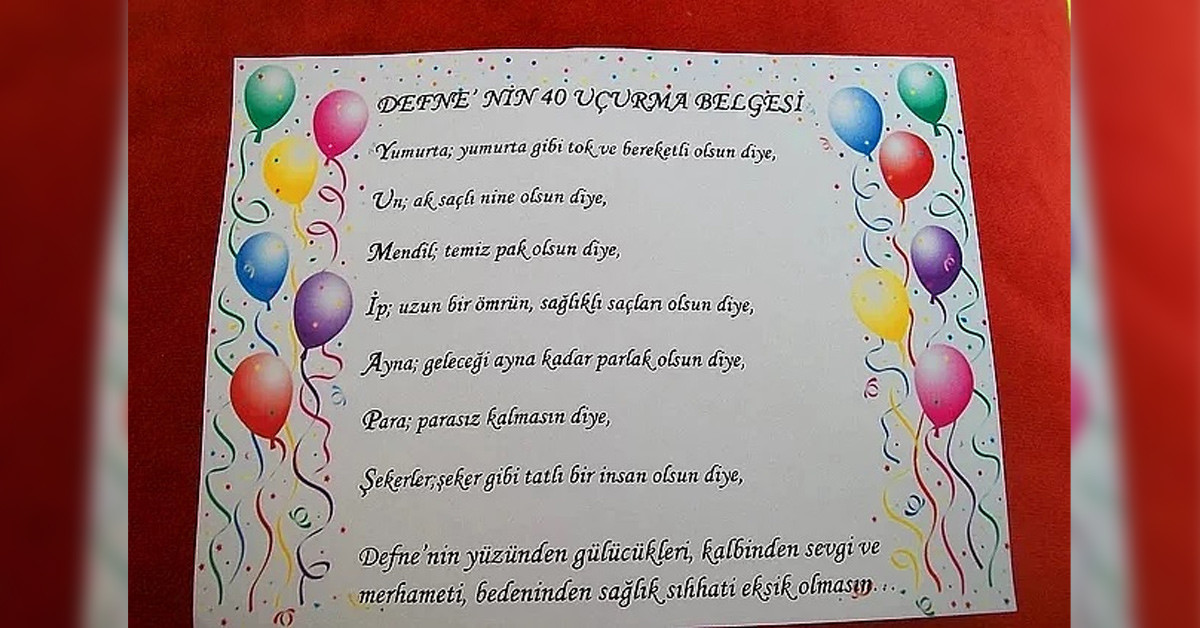 DEFNE' NİN 40 UÇURMA BELGESİ
Yumurta; yumurta gibi tok ve bereketli olsun diye,
Un; ak saçlı nine olsun diye,
Mendil; temiz pak olsun diye,
İp; uzun bir ömrün, sağlıklı saçları olsun diye,
Ayna; geleceği ayna kadar parlak olsun diye,
Para; parasız kalmasın diye,
Şekerler;şeker gibi tatlı bir insan olsun diye,
Defne'nin yüzünden gülücükleri, kalbinden sevgi ve
merhameti, bedeninden sağlık sıhhati eksik olmasın...